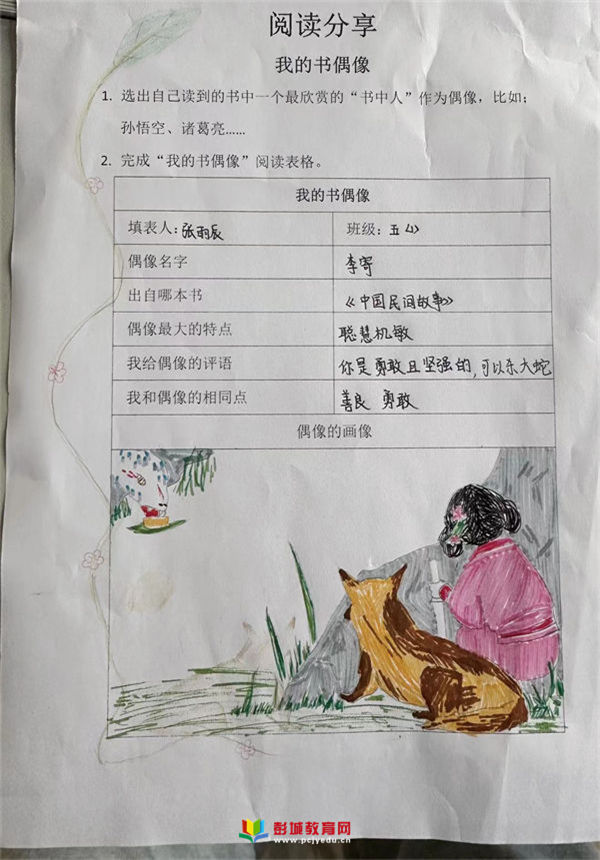 阅读分享
我的书偶像
1. 选出自己读到的书中一个最欣赏的“书中人”作为偶像，比如；
孙悟空、诸葛亮……
2. 完成“我的书偶像”阅读表格。
我的书偶像
填表人：张雨辰 班级：五
偶像名字 李寄
出自哪本书 《中国民间故事》
偶像最大的特点 聪慧机敏
我给偶像的评语 你是勇敢且坚强的，可以杀大蛇
我和偶像的相同点 善良 勇敢
偶像的画像
彭城教育网
www.pcjyedu.cn